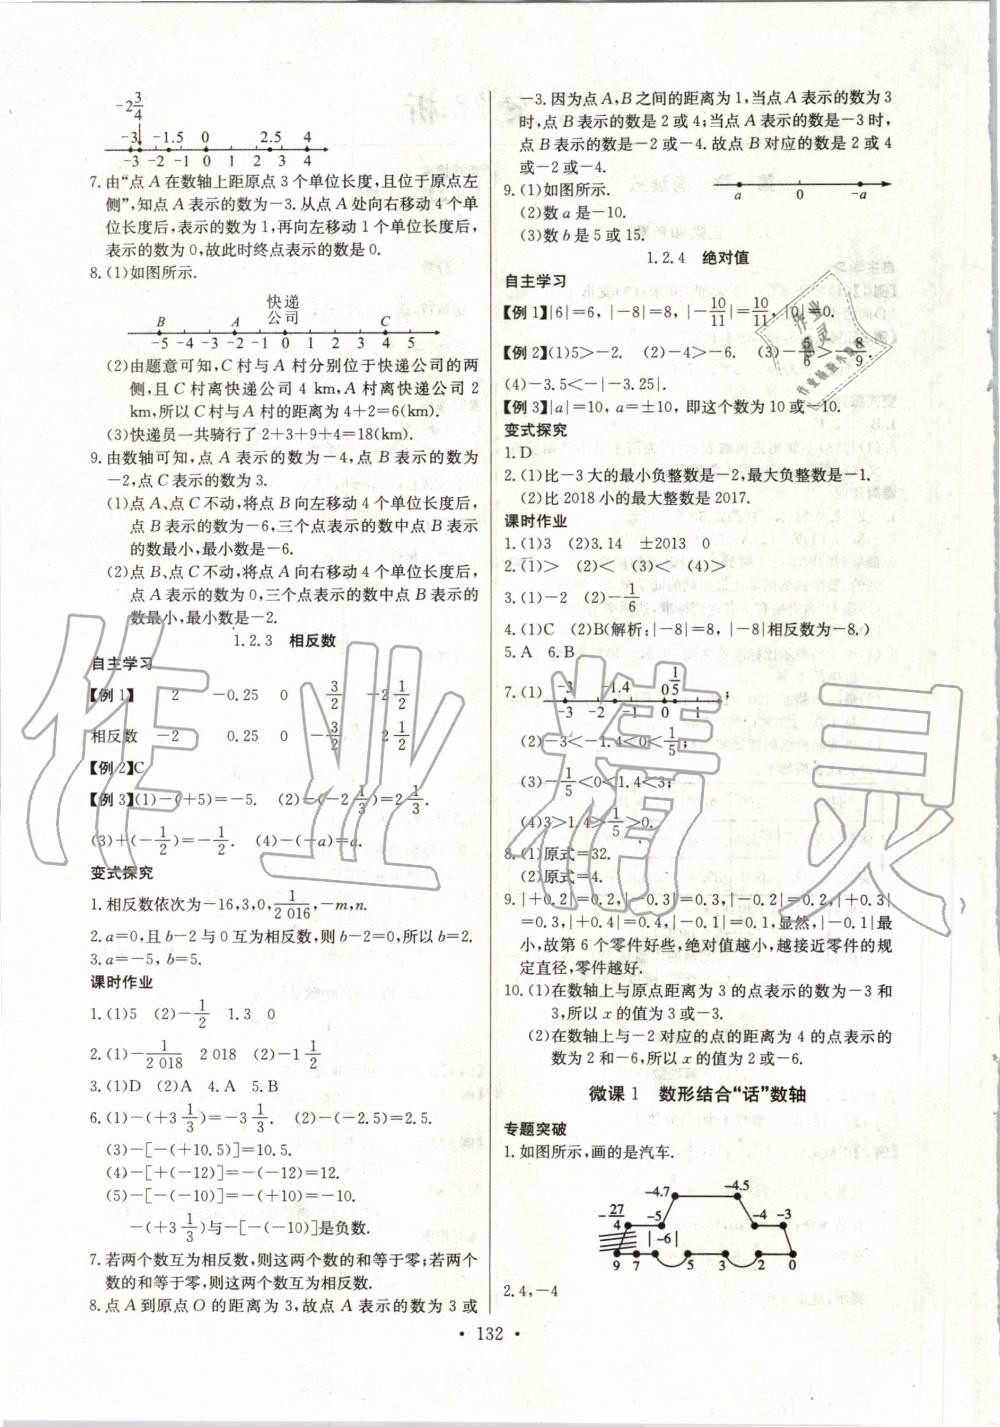 -2 3/4
-3 -1.5 0 2.5 4
-3 -2 -1 0 1 2 3 4
7.由“点A在数轴上距原点3个单位长度,且位于原点左
侧”,知点A表示的数为-3.从点A处向右移动4个单
位长度后,表示的数为1,再向左移动1个单位长度后,
表示的数为0,故此时终点表示的数是0.
8.(1)如图所示.
快递
公司
B A C
-5 -4 -3 -2 -1 0 1 2 3 4 5
(2)由题意可知,C村与A村分别位于快递公司的两
侧,且C村离快递公司4 km,A村离快递公司2
km,所以C村与A村的距离为4+2=6(km).
(3)快递员一共骑行了2+3+9+4=18(km).
9.由数轴可知,点A表示的数为-4,点B表示的数为
-2,点C表示的数为3.
(1)点A、点C不动,将点B向左移动4个单位长度后,
点B表示的数为-6,三个点表示的数中点B表示
的数最小,最小数是-6.
(2)点B、点C不动,将点A向右移动4个单位长度后,
点A表示的数为0,三个点表示的数中点B表示的
数最小,最小数是-2.
1.2.3 相反数
自主学习
【例1】 2 -0.25 0 3/2 -2 1/2
相反数 -2 0.25 0 -3/2 2 1/2
【例2】C
【例3】(1)-(+5)=-5. (2)-(-2 1/3)=2 1/3.
(3)+(-1/2)=-1/2. (4)-(-a)=a.
变式探究
1.相反数依次为-16,3,0,1/2 016,-m,n.
2.a=0,且b-2与0互为相反数,则b-2=0,所以b=2.
3.a=-5,b=5.
课时作业
1.(1)5 (2)-1/2 1.3 0
2.(1)-1/2 018 2 018 (2)-1 1/2
3.(1)D (2)A 4.A 5.B
6.(1)-(+3 1/3)=-3 1/3. (2)-(-2.5)=2.5.
(3)-[-(+10.5)]=10.5.
(4)-[+(-12)]=-(-12)=12.
(5)-[-(-10)]=-(+10)=-10.
-(+3 1/3)与-[-(-10)]是负数.
7.若两个数互为相反数,则这两个数的和等于零;若两个
数的和等于零,则这两个数互为相反数.
8.点A到原点O的距离为3,故点A表示的数为3或
-3.因为点A,B之间的距离为1,当点A表示的数为3
时,点B表示的数是2或4;当点A表示的数是-3时,
点B表示的数是-2或-4.故点B对应的数是2或4
或-2或-4.
9.(1)如图所示.
a 0 -a
(2)数a是-10.
(3)数b是5或15.
1.2.4 绝对值
自主学习
【例1】|6|=6,|-8|=8,|-10/11|=10/11,|0|=0.
【例2】(1)5>-2. (2)-4>-6. (3)-5/6>-8/9.
(4)-3.5<-|-3.25|.
【例3】|a|=10,a=±10,即这个数为10或-10.
变式探究
1.D
2.(1)比-3大的最小负整数是-2,最大负整数是-1.
(2)比2018小的最大整数是2017.
课时作业
1.(1)3 (2)3.14 ±2013 0
2.(1)> (2)< (3)< (4)>
3.(1)-2 (2)-1/6
4.(1)C (2)B(解析:|-8|=8,|-8|相反数为-8.)
5.A 6.B
7.(1) -3 -1.4 0 1/5 ;
-3 -2 -1 0 1
(2)-3<-1.4<0<1/5;
(3)-1/5<0<1.4<3;
(4)3>1.4>1/5>0.
8.(1)原式=32.
(2)原式=4.
9.|+0.2|=0.2,|-0.3|=0.3,|-0.2|=0.2,|+0.3|
=0.3,|+0.4|=0.4,|-0.1|=0.1,显然,|-0.1|最
小,故第6个零件好些,绝对值越小,越接近零件的规
定直径,零件越好.
10.(1)在数轴上与原点距离为3的点表示的数为-3和
3,所以x的值为3或-3.
(2)在数轴上与-2对应的点的距离为4的点表示的
数为2和-6,所以x的值为2或-6.
微课1 数形结合“话”数轴
专题突破
1.如图所示,画的是汽车.
-4.7 -4.5
-27/4 -5 -4 -3
|-6|
9 7 5 3 2 0
2.4,-4
• 132 •
作业精灵